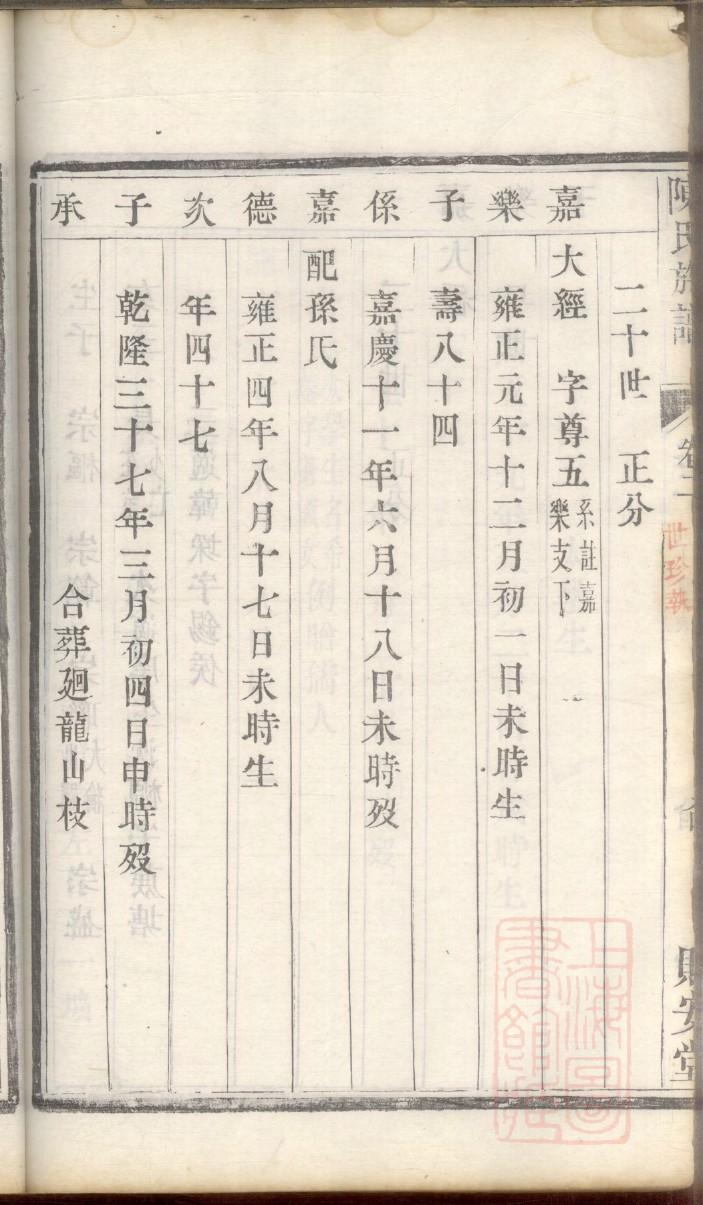 陳氏族譜
卷二
世珍執
貽安堂
二十世 正分
嘉樂子係嘉德次子承
大經 字尊五 系註嘉
樂支下
雍正元年十二月初一日未時生
壽八十四
嘉慶十一年六月十八日未時歿
配孫氏
雍正四年八月十七日未時生
年四十七
乾隆三十七年三月初四日申時歿
合葬廻龍山枝
上海圖
書館藏